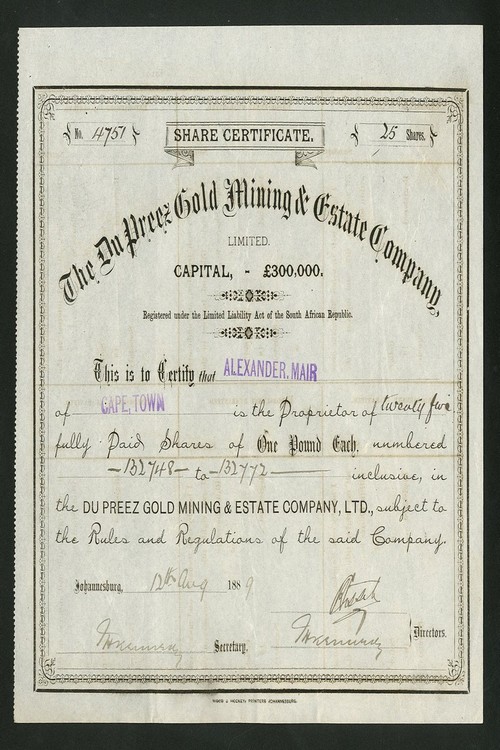 No. 4751
SHARE CERTIFICATE.
25 Shares.
The Du Preez Gold Mining & Estate Company,
LIMITED.
CAPITAL, - £300,000.
Registered under the Limited Liability Act of the South African Republic.
This is to Certify that ALEXANDER. MAIR
of CAPE, TOWN is the Proprietor of twenty five
fully Paid Shares of One Pound Each, numbered
-132748- to -132772- inclusive, in
the DU PREEZ GOLD MINING & ESTATE COMPANY, LTD., subject to
the Rules and Regulations of the said Company.
Johannesburg, 12th Aug 1889
Secretary.
Directors.
PRINTERS JOHANNESBURG.